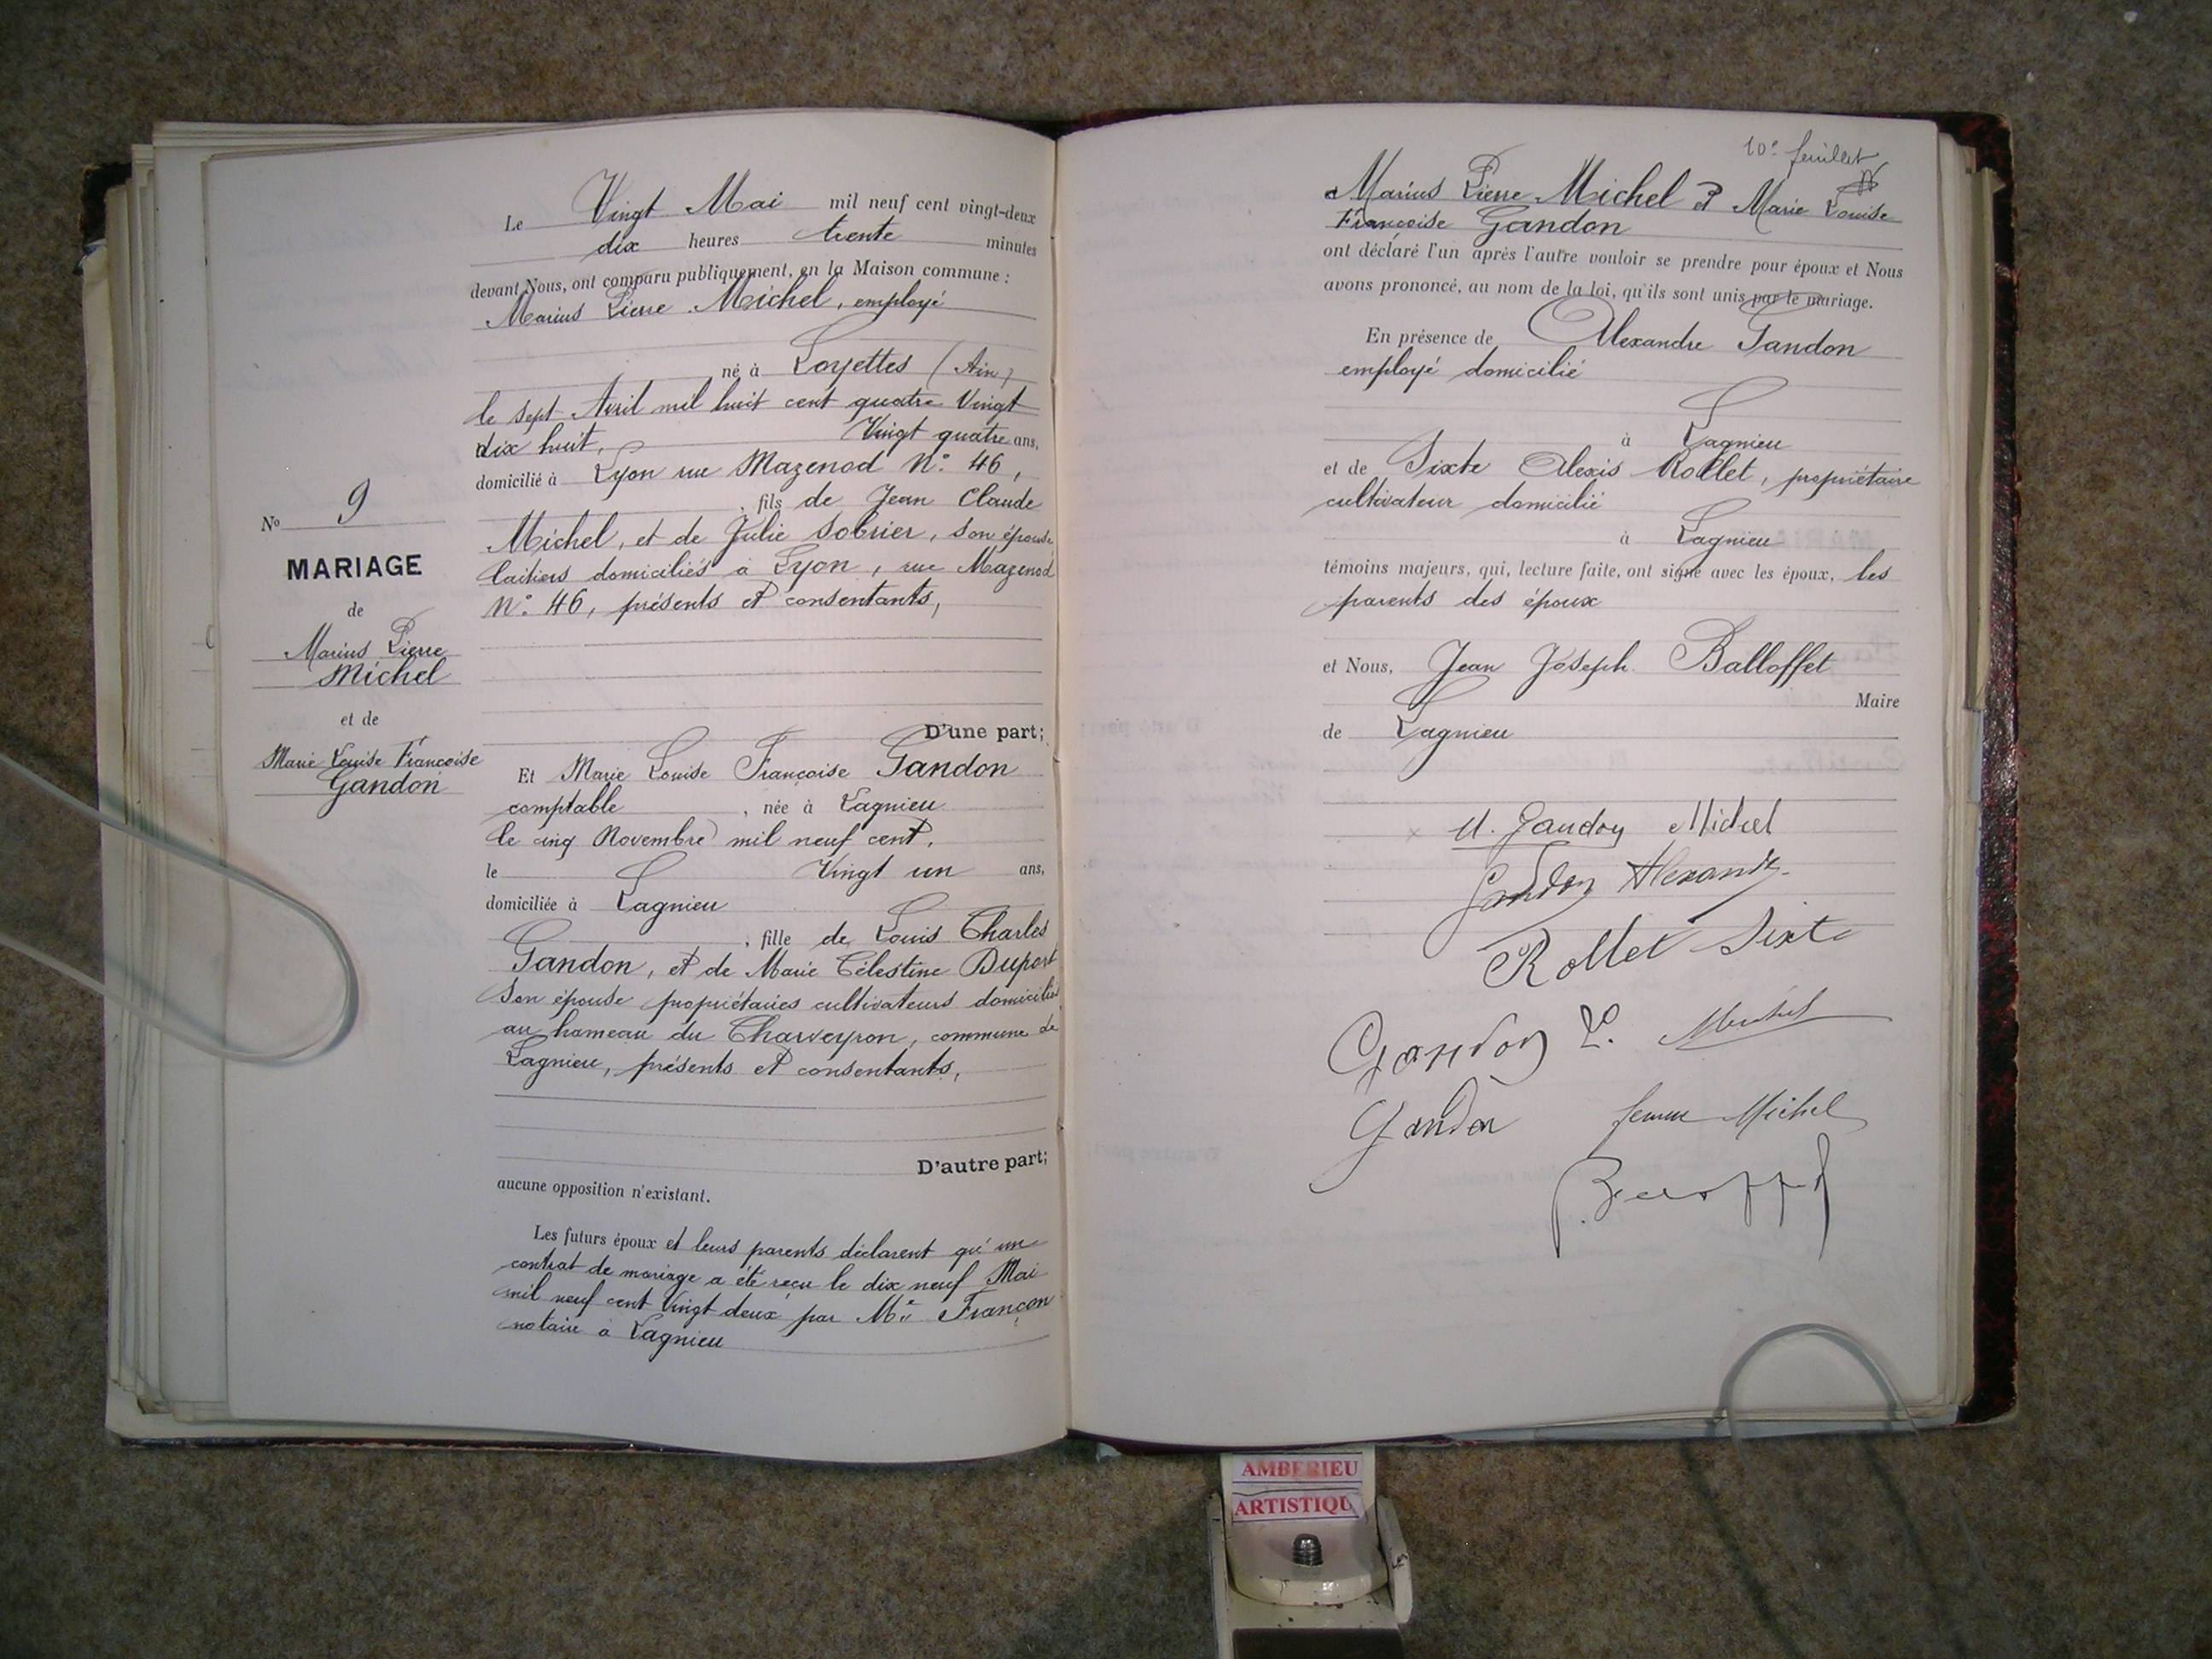 Le Vingt Mai mil neuf cent vingt-deux
dix heures trente minutes
devant Nous, ont comparu publiquement, en la Maison commune :
Marius Pierre Michel, employé
né à Loyettes (Ain)
le sept Avril mil huit cent quatre Vingt
dix huit, Vingt quatre ans,
domicilié à Lyon rue Mazenod N° 46,
, fils de Jean Claude
Michel, et de Julie Sobrier, son épouse
laitiers domiciliés à Lyon, rue Mazenod
N° 46, présents et consentants,
D'une part;
No 9
MARIAGE
de
Marius Pierre
Michel
et de
Marie Louise Françoise
Gandon
Et Marie Louise Françoise Gandon
comptable , née à Lagnieu
le cinq Novembre mil neuf cent,
le Vingt un ans,
domiciliée à Lagnieu
, fille de Louis Charles
Gandon, et de Marie Célestine Duport
son épouse propriétaires cultivateurs domiciliés
au hameau du Charveyron, commune de
Lagnieu, présents et consentants,
D'autre part;
aucune opposition n'existant.
Les futurs époux et leurs parents déclarent qu'un
contrat de mariage a été reçu le dix neuf Mai
mil neuf cent Vingt deux par Me Françon
notaire à Lagnieu
10e feuillet
Marius Pierre Michel et Marie Louise
Françoise Gandon
ont déclaré l'un après l'autre vouloir se prendre pour époux et Nous
avons prononcé, au nom de la loi, qu'ils sont unis par le mariage.
En présence de Alexandre Gandon
employé domicilié
à Lagnieu
et de Sixte Alexis Rollet, propriétaire
cultivateur domicilié
à Lagnieu
témoins majeurs, qui, lecture faite, ont signé avec les époux, les
parents des époux
et Nous, Jean Joseph Balloffet
Maire
de Lagnieu
M. Gandon Michel
Gandon Alexandre
Rollet Sixte
Gandon L. Michel
Gandon femme Michel
AMBERIEU
ARTISTIQU